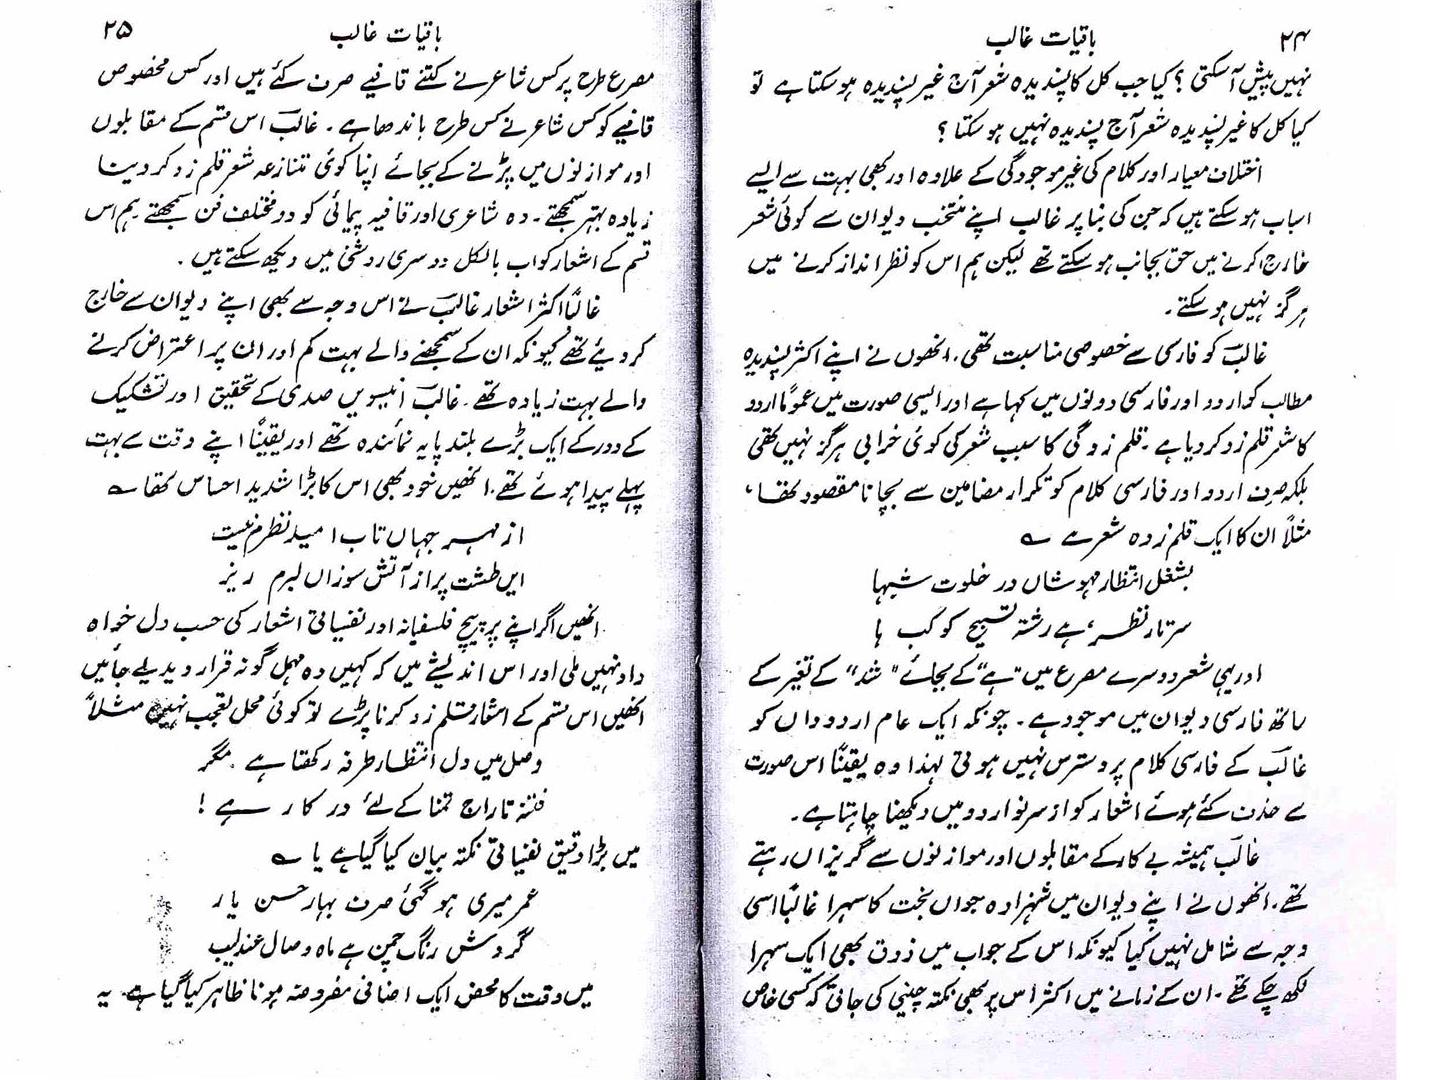 ۲۴
باقیات غالب
نہیں پیش آسکتی ؟ کیا جب کل کا پسندیدہ شعر آج غیر پسندیدہ ہو سکتا ہے تو
کیا کل کا غیر پسندیدہ شعر آج پسندیدہ نہیں ہو سکتا ؟
اختلاف معیار اور کلام کی غیر موجودگی کے علاوہ اور بھی بہت سے ایسے
اسباب ہو سکتے ہیں کہ جن کی بنا پر غالب اپنے منتخب دیوان سے کوئی شعر
خارج کرنے میں حق بجانب ہو سکتے تھے لیکن ہم اس کو نظر انداز کرنے میں
ہرگز نہیں ہو سکتے۔
غالبؔ کو فارسی سے خصوصی مناسبت تھی، انھوں نے اپنے اکثر پسندیدہ
مطالب کو اردو اور فارسی دونوں میں کہا ہے اور ایسی صورت میں عموماً اردو
کا شعر قلم زد کر دیا ہے ۔ قلم زدگی کا سبب شعر کی کوئی خرابی ہرگز نہیں تھی
بلکہ صرف اردو اور فارسی کلام کو تکرار مضامین سے بچانا مقصود تھا،
مثلاً ان کا ایک قلم زدہ شعر ہے ؎
بشغل انتظار مہوشاں در خلوت شبہا
سر تار نظر ہے رشتہ تسبیح کوکب ہا
اور یہی شعر دوسرے مصرع میں "ہے" کے بجائے "شد" کے تغیر کے
ساتھ فارسی دیوان میں موجود ہے ۔ چونکہ ایک عام اردو داں کو
غالبؔ کے فارسی کلام پر دسترس نہیں ہوتی لہٰذا وہ یقیناً اس صورت
سے حذف کئے ہوئے اشعار کو از سر نو اردو میں دیکھنا چاہتا ہے۔
غالبؔ ہمیشہ بے کار کے مقابلوں اور موازنوں سے گریزاں رہتے
تھے، انھوں نے اپنے دیوان میں شہزادہ جواں بخت کا سہرا غالباً اسی
وجہ سے شامل نہیں کیا کیونکہ اس کے جواب میں ذوق بھی ایک سہرا
لکھ چکے تھے ۔ ان کے زمانے میں اکثر اس پر بھی نکتہ چینی کی جاتی کہ کسی خاص
باقیات غالب
۲۵
مصرع طرح پر کس شاعر نے کتنے قافیے صرف کئے ہیں اور کس مخصوص
قافیے کو کس شاعر نے کس طرح باندھا ہے ۔ غالبؔ اس قسم کے مقابلوں
اور موازنوں میں پڑنے کے بجائے اپنا کوئی متنازعہ شعر قلم زد کر دینا
زیادہ بہتر سمجھتے ۔ وہ شاعری اور قافیہ پیمائی کو دو مختلف فن سمجھتے ہم اس
قسم کے اشعار کو اب بالکل دوسری روشنی میں دیکھ سکتے ہیں ۔
غالباً اکثر اشعار غالبؔ نے اس وجہ سے بھی اپنے دیوان سے خارج
کر دیئے تھے کیونکہ ان کے سمجھنے والے بہت کم اور ان پر اعتراض کرنے
والے بہت زیادہ تھے ۔ غالبؔ انیسویں صدی کے تحقیق اور تشکیک
کے دور کے ایک بڑے بلند پایہ نمائندہ تھے اور یقیناً اپنے وقت سے بہت
پہلے پیدا ہوئے تھے ۔ انھیں خود بھی اس کا بڑا شدید احساس تھا ؎
از مہر جہاں تاب امید نظرم نیست
ایں طشت پر از آتش سوزاں بسرم ریز
انھیں اگر اپنے پر پیچ فلسفیانہ اور نفسیاتی اشعار کی حسب دل خواہ
داد نہیں ملی اور اس اندیشے میں کہ کہیں وہ مہمل گو نہ قرار دیدیئے جائیں
انھیں اس قسم کے اشعار قلم زد کرنا پڑے تو کوئی محل تعجب نہیں مثلاً
وصل میں دل انتظار طرفہ رکھتا ہے ، مگر
فتنہ تاراج تمنا کے لئے درکار ہے !
میں بڑا دقیق نفسیاتی نکتہ بیان کیا گیا ہے یا ؎
عمر میری ہو گئی صرف بہار حسن یار
گردش رنگ چمن ہے ماہ و سال عندلیب
میں وقت کا محض ایک اضافی مفروضہ ہونا ظاہر کیا گیا ہے ۔ یہ